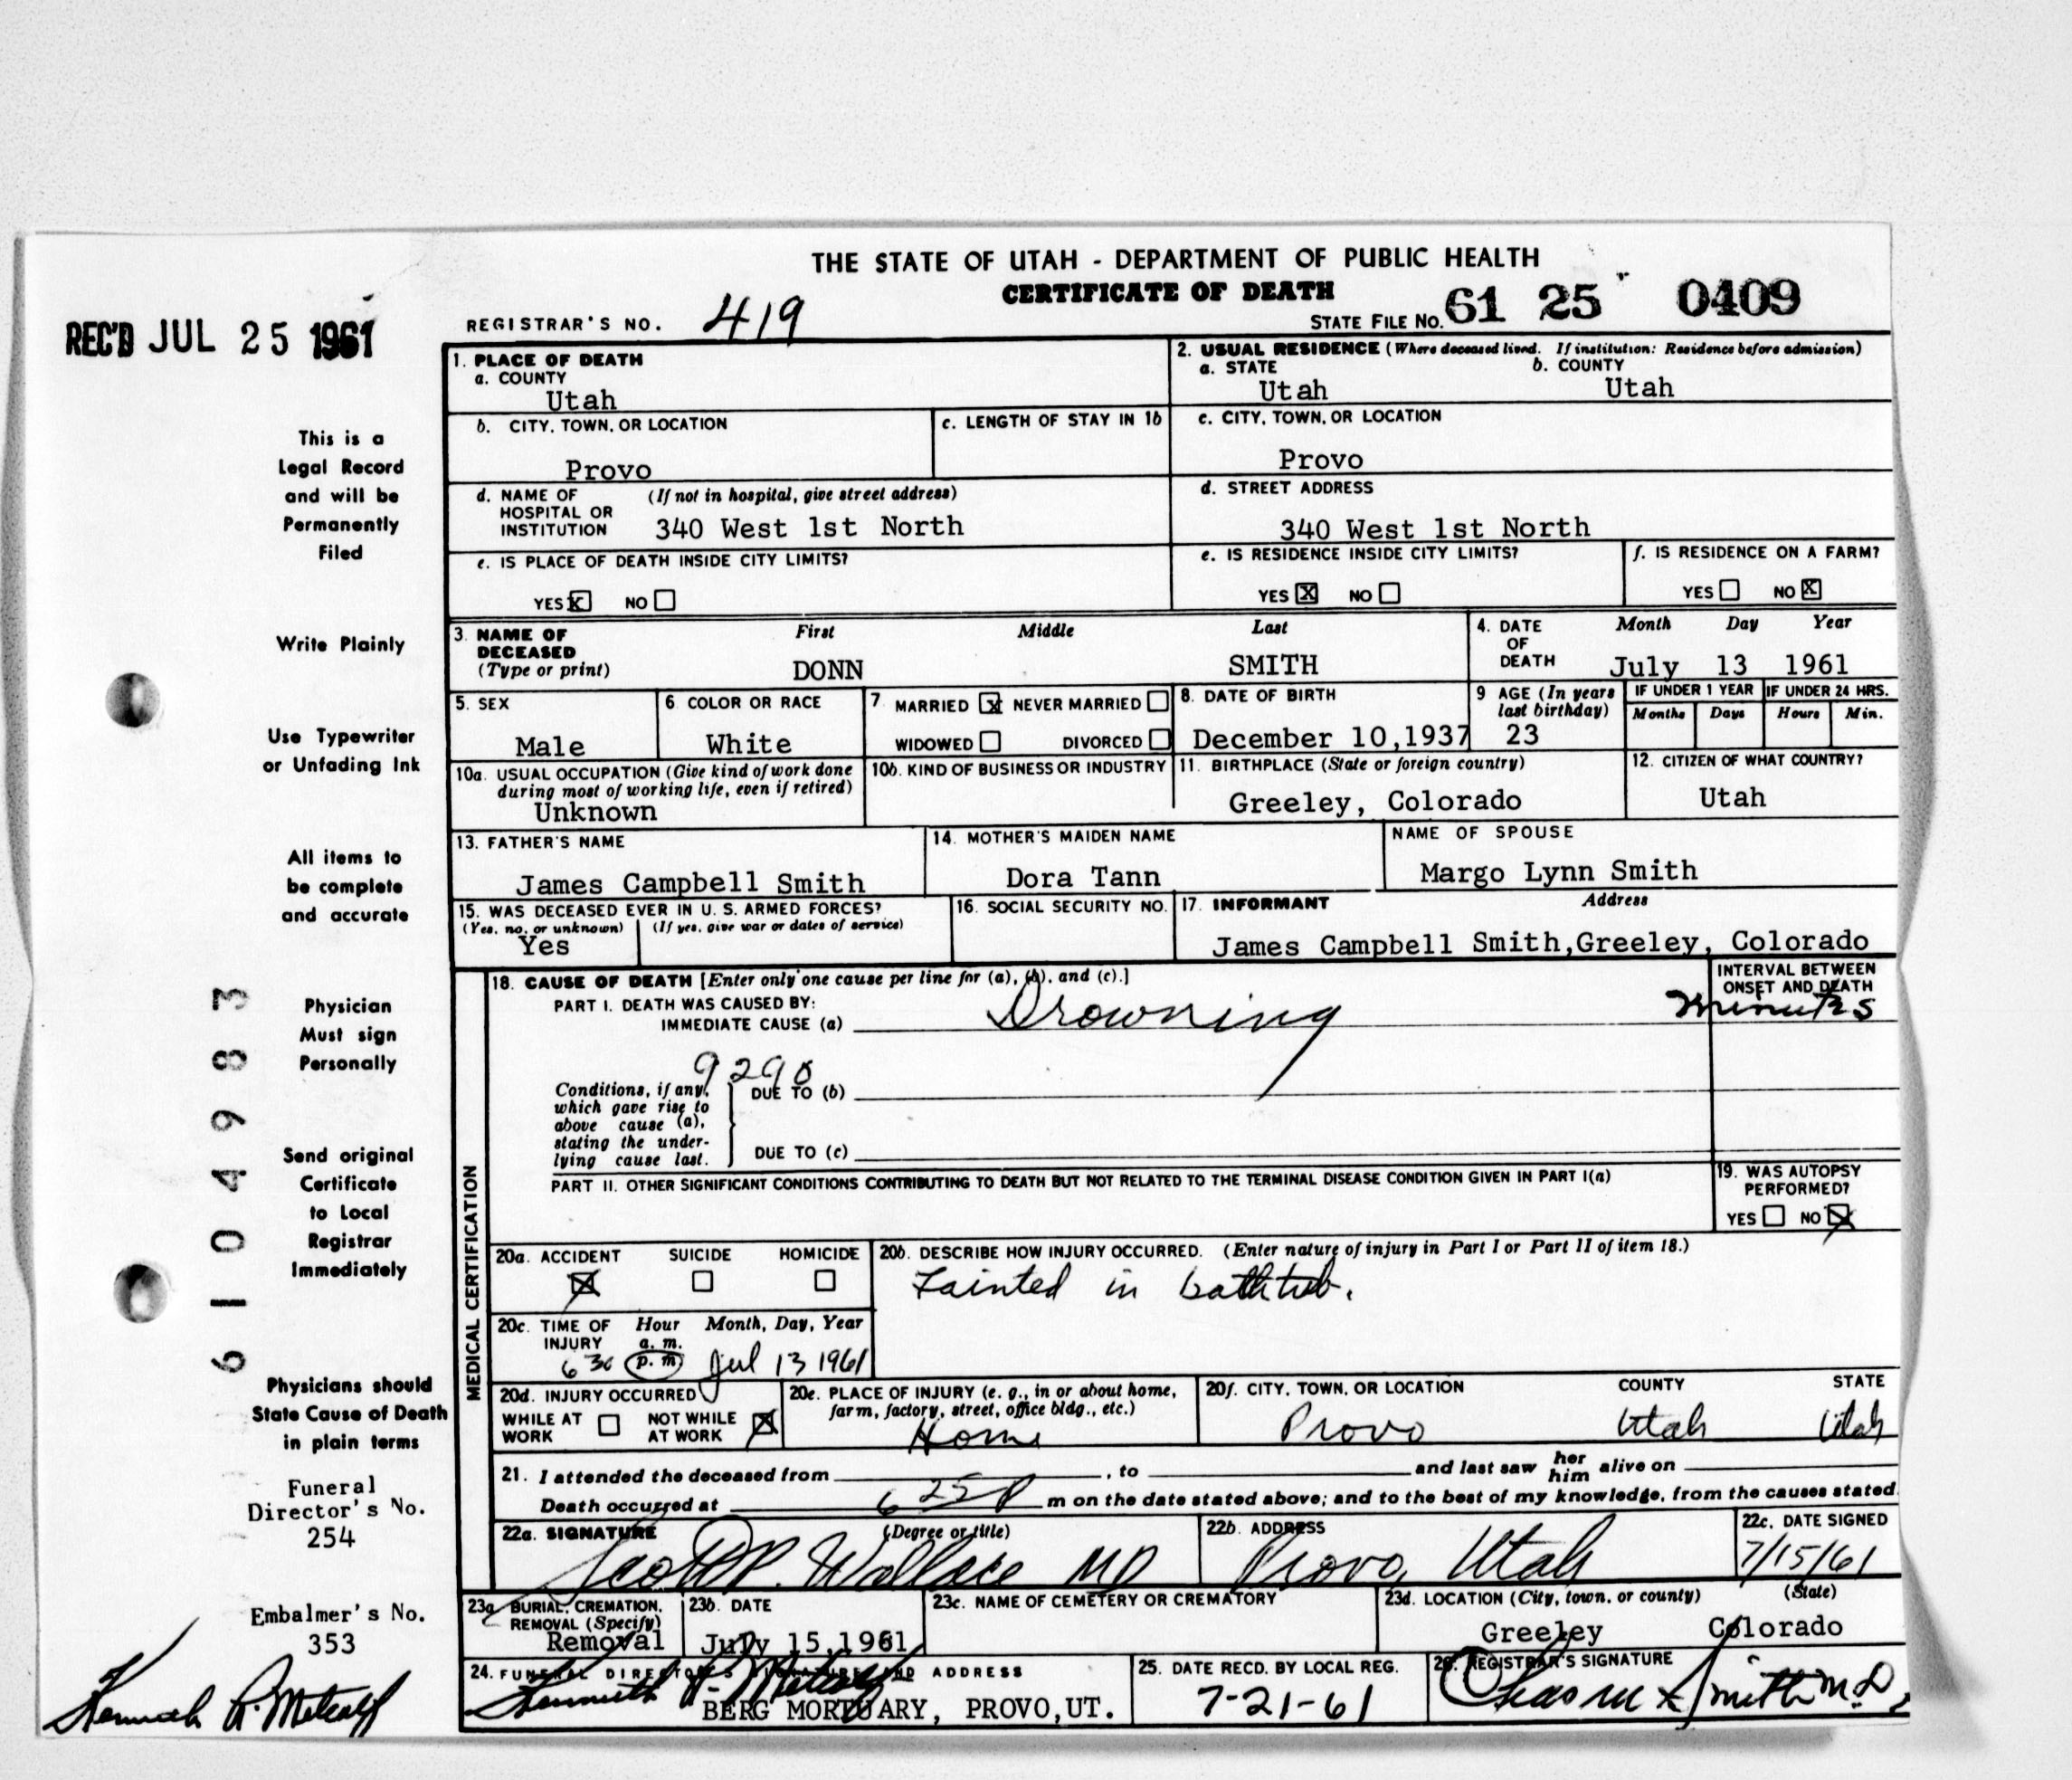 THE STATE OF UTAH - DEPARTMENT OF PUBLIC HEALTH
CERTIFICATE OF DEATH
REC'D JUL 25 1961
REGISTRAR'S NO. 419
STATE FILE No. 61 25 0409
This is a
Legal Record
and will be
Permanently
Filed
Write Plainly
Use Typewriter
or Unfading Ink
All items to
be complete
and accurate
Physician
Must sign
Personally
Send original
Certificate
to Local
Registrar
Immediately
Physicians should
State Cause of Death
in plain terms
Funeral
Director's No.
254
Embalmer's No.
353
Kenneth R. Metcalf
61 04983
1. PLACE OF DEATH
a. COUNTY
Utah
2. USUAL RESIDENCE (Where deceased lived. If institution: Residence before admission)
a. STATE b. COUNTY
Utah Utah
b. CITY, TOWN, OR LOCATION
Provo
c. LENGTH OF STAY IN 1b
c. CITY, TOWN, OR LOCATION
Provo
d. NAME OF (If not in hospital, give street address)
HOSPITAL OR
INSTITUTION 340 West 1st North
d. STREET ADDRESS
340 West 1st North
e. IS PLACE OF DEATH INSIDE CITY LIMITS?
YES X NO
e. IS RESIDENCE INSIDE CITY LIMITS?
YES X NO
f. IS RESIDENCE ON A FARM?
YES NO X
3. NAME OF First Middle Last
DECEASED
(Type or print) DONN SMITH
4. DATE Month Day Year
OF
DEATH July 13 1961
5. SEX
Male
6. COLOR OR RACE
White
7 MARRIED X NEVER MARRIED
WIDOWED DIVORCED
8. DATE OF BIRTH
December 10,1937
9 AGE (In years
last birthday)
23
IF UNDER 1 YEAR IF UNDER 24 HRS.
Months Days Hours Min.
10a. USUAL OCCUPATION (Give kind of work done
during most of working life, even if retired)
Unknown
10b. KIND OF BUSINESS OR INDUSTRY
11. BIRTHPLACE (State or foreign country)
Greeley, Colorado
12. CITIZEN OF WHAT COUNTRY?
Utah
13. FATHER'S NAME
James Campbell Smith
14. MOTHER'S MAIDEN NAME
Dora Tann
NAME OF SPOUSE
Margo Lynn Smith
15. WAS DECEASED EVER IN U. S. ARMED FORCES?
(Yes, no, or unknown) (If yes, give war or dates of service)
Yes
16. SOCIAL SECURITY NO.
17. INFORMANT Address
James Campbell Smith,Greeley, Colorado
MEDICAL CERTIFICATION
18. CAUSE OF DEATH [Enter only one cause per line for (a), (b), and (c).]
PART I. DEATH WAS CAUSED BY:
IMMEDIATE CAUSE (a) Drowning
INTERVAL BETWEEN
ONSET AND DEATH
minutes
9290
Conditions, if any,
which gave rise to
above cause (a),
stating the under-
lying cause last.
DUE TO (b)
DUE TO (c)
PART II. OTHER SIGNIFICANT CONDITIONS CONTRIBUTING TO DEATH BUT NOT RELATED TO THE TERMINAL DISEASE CONDITION GIVEN IN PART I(a)
19. WAS AUTOPSY
PERFORMED?
YES NO X
20a. ACCIDENT SUICIDE HOMICIDE
X
20b. DESCRIBE HOW INJURY OCCURRED. (Enter nature of injury in Part I or Part II of item 18.)
Fainted in bathtub.
20c. TIME OF Hour Month, Day, Year
INJURY a. m.
6 30 p. m Jul 13 1961
20d. INJURY OCCURRED
WHILE AT WORK NOT WHILE AT WORK X
20e. PLACE OF INJURY (e. g., in or about home,
farm, factory, street, office bldg., etc.)
Home
20f. CITY, TOWN, OR LOCATION COUNTY STATE
Provo Utah Utah
21. I attended the deceased from , to and last saw her him alive on
Death occurred at 6 25 P m on the date stated above; and to the best of my knowledge, from the causes stated.
22a. SIGNATURE (Degree or title)
Scott P. Wallace MD
22b. ADDRESS
Provo, Utah
22c. DATE SIGNED
7/15/61
23a. BURIAL, CREMATION,
REMOVAL (Specify)
Removal
23b. DATE
July 15,1961
23c. NAME OF CEMETERY OR CREMATORY
23d. LOCATION (City, town, or county) (State)
Greeley Colorado
24. FUNERAL DIRECTOR'S SIGNATURE AND ADDRESS
Kenneth R. Metcalf
BERG MORTUARY, PROVO,UT.
25. DATE RECD. BY LOCAL REG.
7-21-61
26. REGISTRAR'S SIGNATURE
Smith M.D.